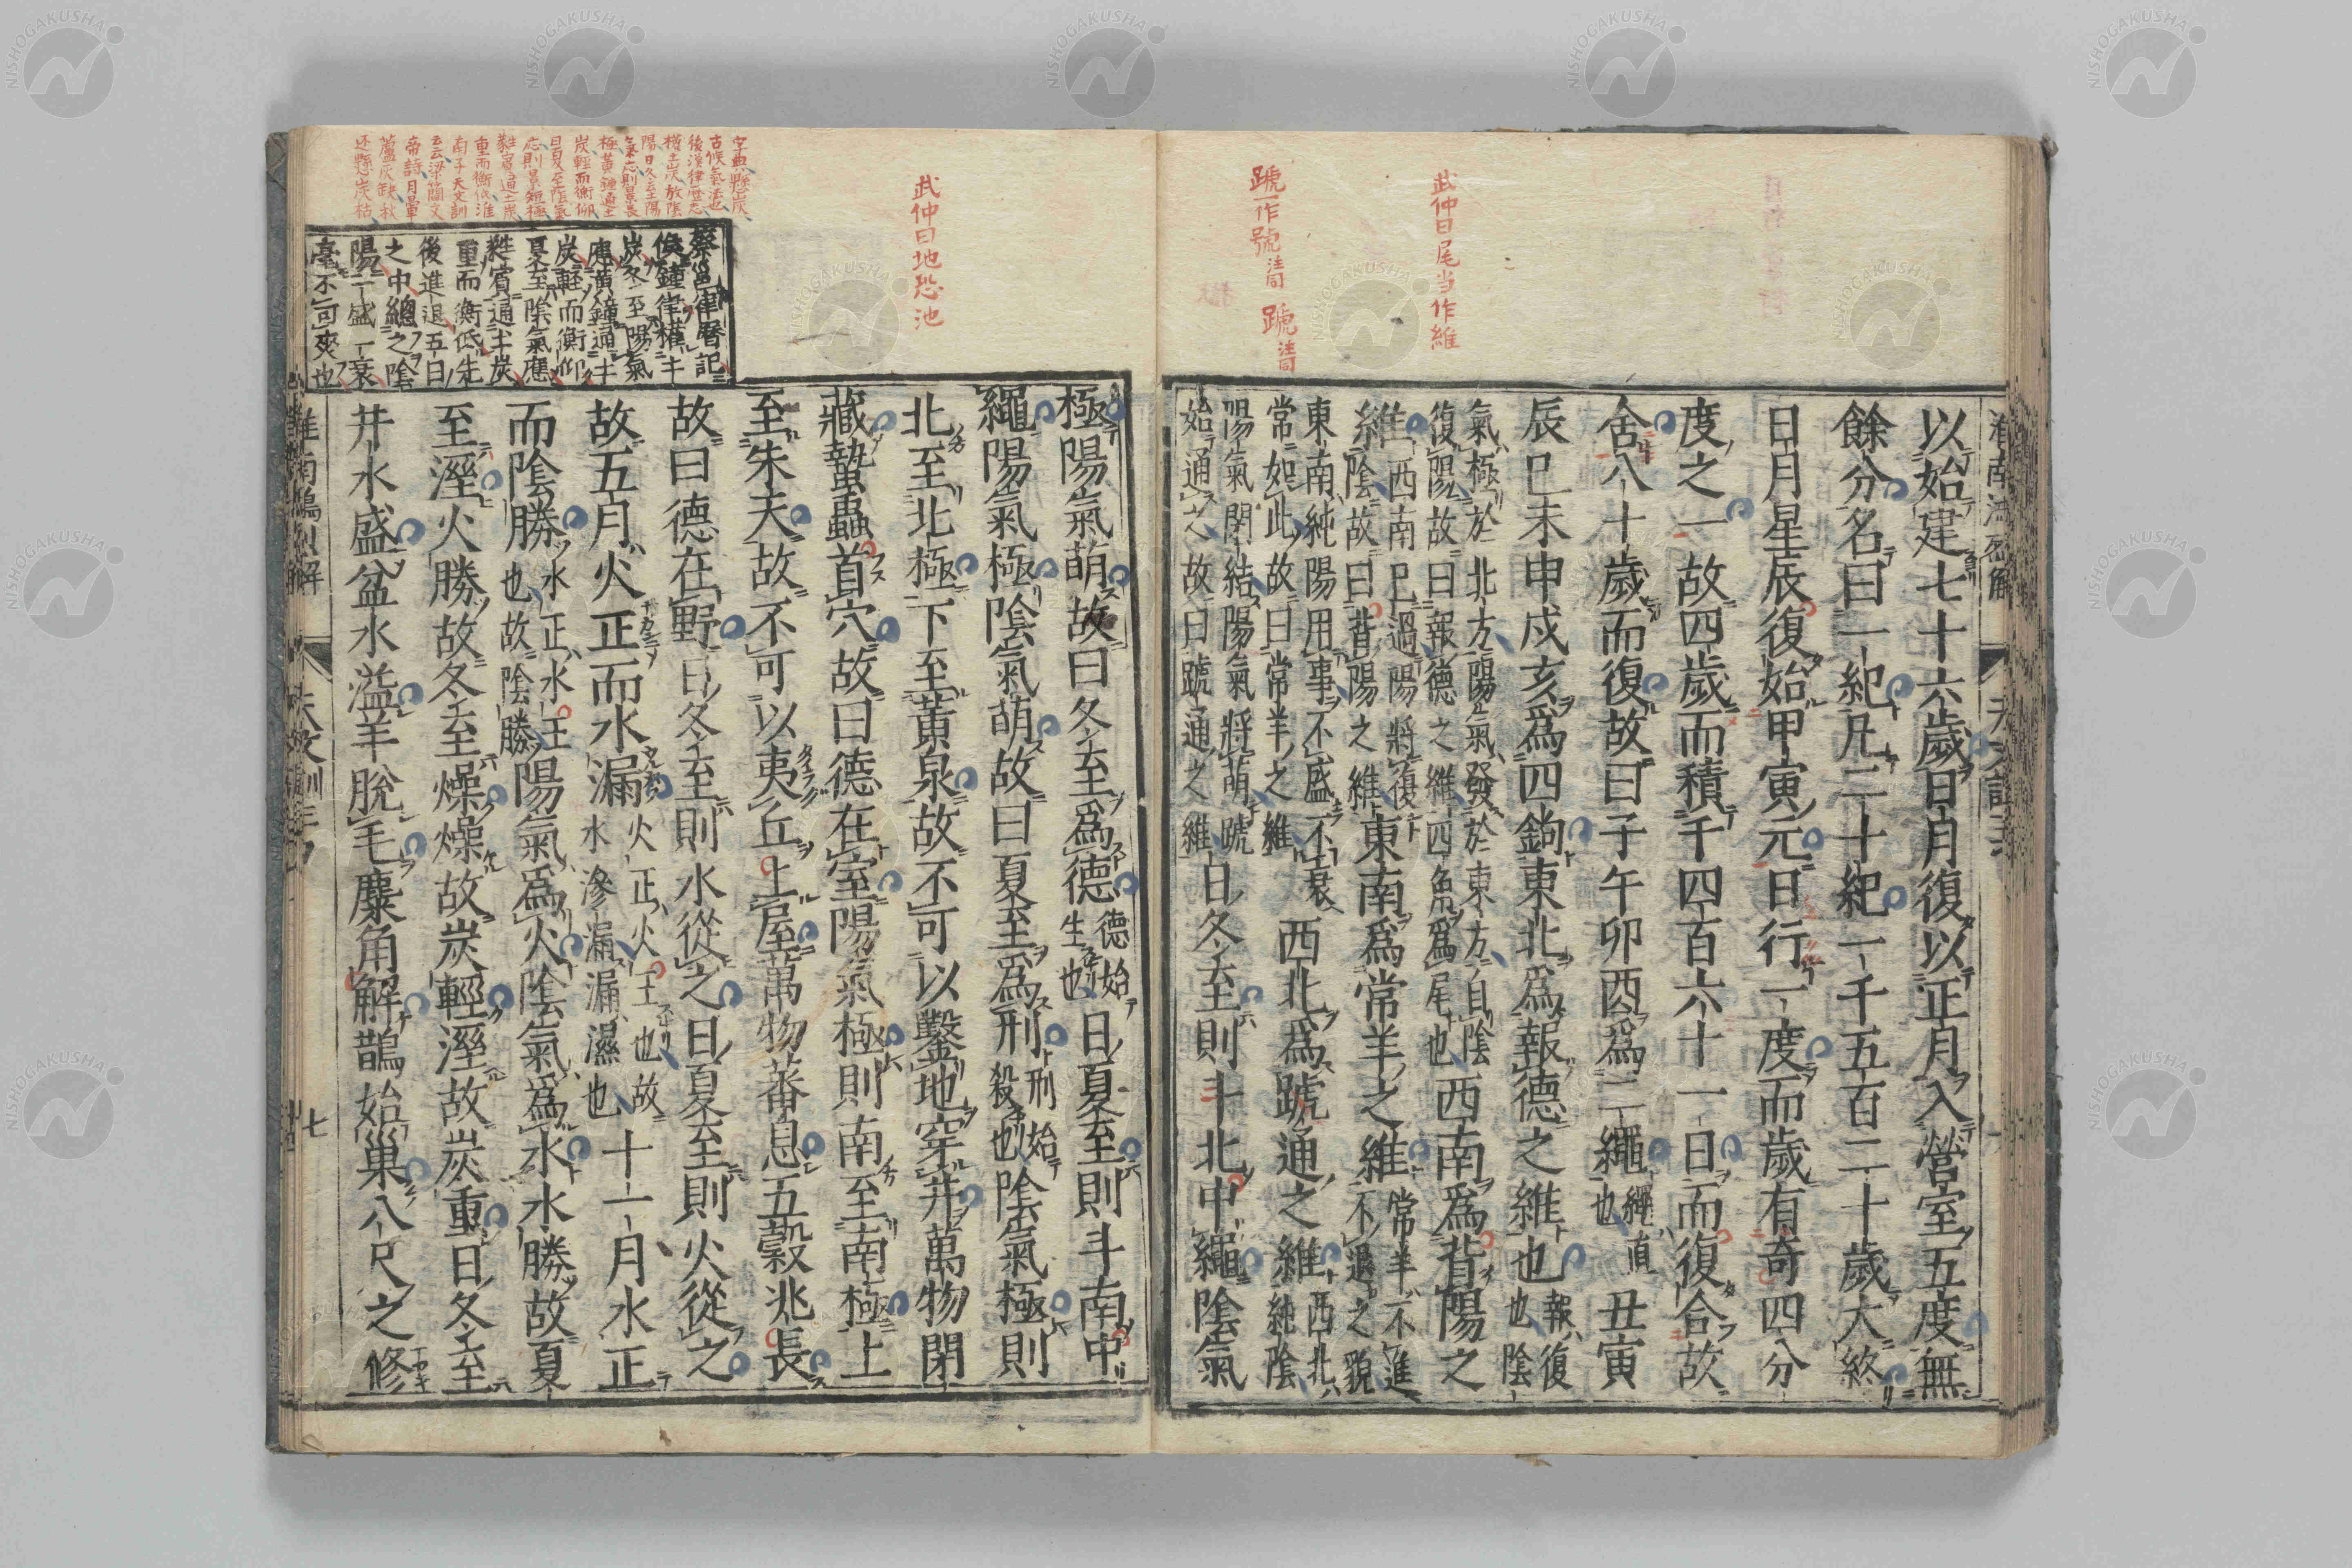 武仲曰尾当作維
蹏一作號注同
蹏注同
以始建七十六歲日月復以正月入營室五度無
餘分名曰一紀凡二十紀一千五百二十歲大終
日月星辰復始甲寅元日行一度而歲有奇四分
度之一故四歲而積千四百六十一日而復合故
舍八十歲而復故曰子午卯酉爲二繩繩直也丑寅
辰巳未申戌亥爲四鉤東北爲報德之維也報復也陰
氣極於北方陽氣發於東方自陰
復陽故曰報德之維四角爲尾也西南爲背陽之
維西南已過陽將復
陰故曰背陽之維東南爲常羊之維常羊不進
不退之貌
東南純陽用事不盛不衰
常如此故曰常羊之維西北爲蹏通之維西北純陰
陽氣閉結陽氣將萌蹏
始通之故曰蹏通之維日冬至則斗北中繩陰氣
武仲曰地恐池
極陽氣萌故曰冬至爲德德始生也日夏至則斗南中
繩陽氣極陰氣萌故曰夏至爲刑刑始殺也陰氣極則
北至北極下至黃泉故不可以鑿地穿井萬物閉
藏蟄蟲首穴故曰德在室陽氣極則南至南極上
至朱天故不可以夷丘上屋萬物蕃息五穀兆長
故曰德在野日冬至則水從之日夏至則火從之
故五月火正而水漏火正火王也故水滲漏漏濕也十一月水正
而陰勝水正水王也故陰勝陽氣爲火陰氣爲水水勝故夏
至溼火勝故冬至燥燥故炭輕溼故炭重日冬至
井水盛盆水溢羊脫毛麋角解鵲始巢八尺之修
蔡邕律曆記
候鐘律權土
炭冬至陽氣
應黃鐘通土
炭輕而衡仰
夏至陰氣應
蕤賓通土炭
重而衡低先
後進退五日
之中總之陰
陽一盛一衰
毫不可爽也
字典懸炭
古候氣法也
後漢律歷志
權土炭放陰
陽日冬至陽
氣應則景長
極黃鍾通土
炭輕而衡仰
日夏至陰氣
應則景短極
蕤賓通土炭
重而衡低淮
南子天文訓
云云梁簡文
帝詩月暈
蘆灰缺秋
還懸炭枯
七